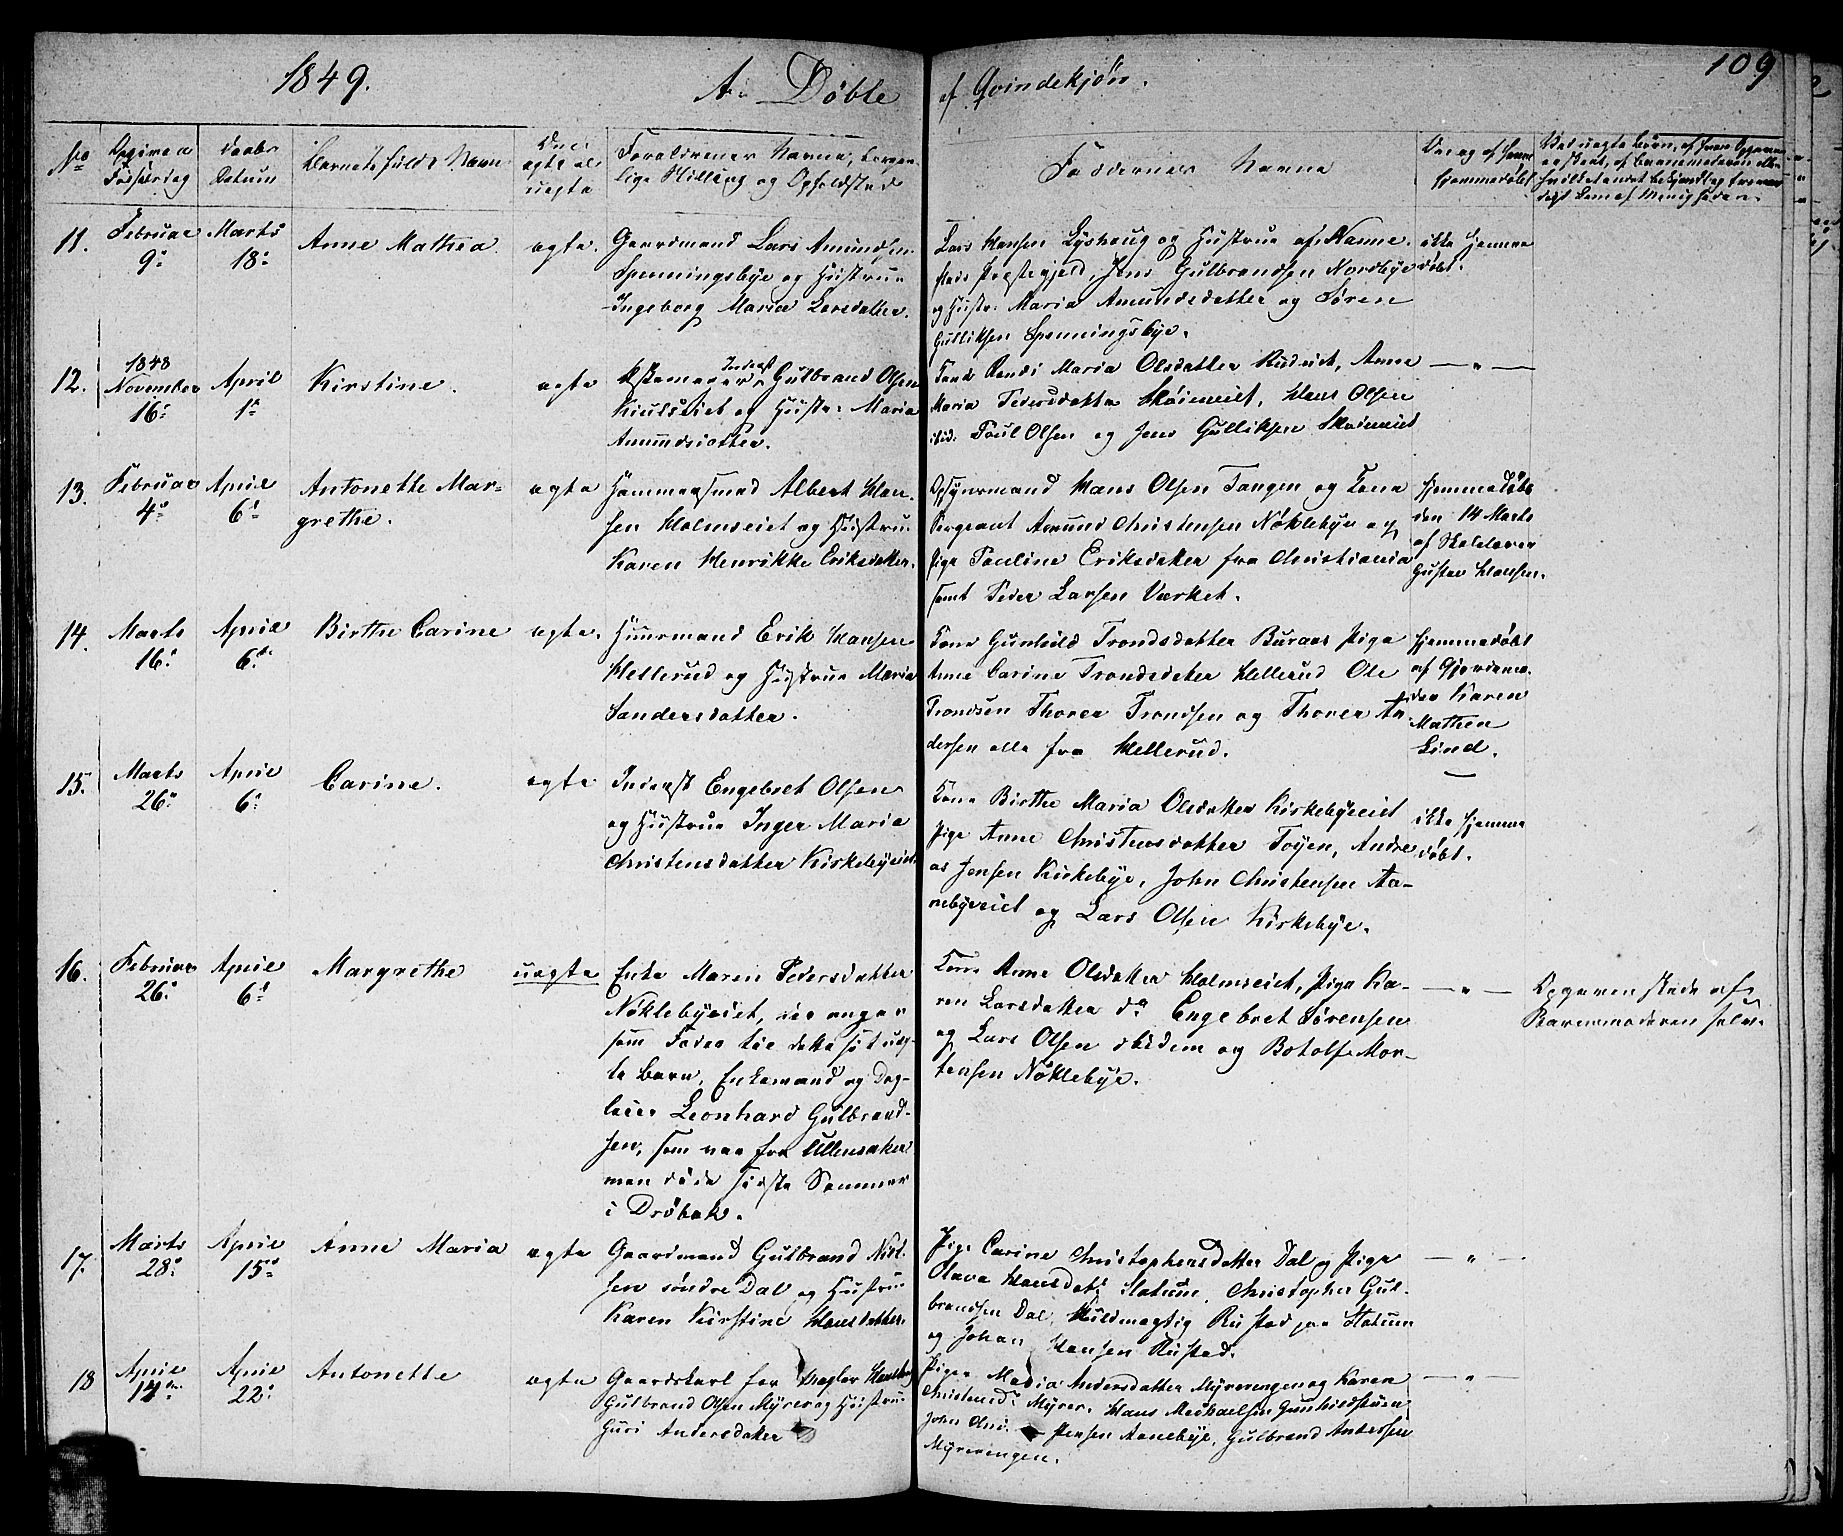 1849.
Døbte
af Qvindekjøn.
109
No
Barnets fulde Navn
ægte el.
uægte
Forældrenes Navne, borger-
lige Stilling og Opholdsted
Faddernes Navne
11.
Februar
9de
Marts
18de
Anne Mathea
ægte.
Gaardmand Lars Amundsen
Spenningsbye og Hustrue
Ingeborg Maria Larsdatter.
Lars Hansen Lyshaug og Hustrue af Nanne-
stads Prestegjeld, Jens Gulbrandsen Nordbye
og Hustr. Maria Amundsdatter og Søren
Gulliksen Spenningsbye.
ikke hjemme
døbt.
12.
1848
November
16de
April
1ste
Kirstine.
ægte
Inderst
Gulbrand Olsen
og Hustr: Maria
Amundsdatter.
Kone Randi Maria Olsdatter Anne
Maria Pedersdatter Skoieneiet, Hans Olsen
ibid. Poul Olsen og Jens Gulliksen Skoieneiet
— " —
13.
Februar
4de
April
6te
Antonette Mar-
grethe.
ægte
Hammersmed Albert Han-
sen Holmseiet og Hustrue
Karen Henrikke Eriksdatter.
Opsynsmand Hans Olsen Tangen og Kone
Sergeant Amund Christensen Nøklebye og
Pige Pauline Eriksdatter fra Christiania
samt Peder Larsen Værket.
hjemmedøbt
den 14 Marts
af Skolelærer
Gustav Hansen.
14.
Marts
16de
April
6te
Birthe Carine
ægte.
Huusmand Erik Hansen
Hellerud og Hustrue Maria
Sandersdatter.
Kone Gunhild Trondsdatter Buraas Pige
Anne Carine Trondsdatter Hellerud Ole
Trondsen Thorer Trondsen og Thorer An-
dersen alle fra Hellerud.
hjemmedøbt
af Gjordemo-
der Karen
Mathea
Lind.
15.
Marts
26de
April
6te
Carine.
ægte
Inderst Engebret Olsen
og Hustrue Inger Maria
Christensdatter Kirkebyeeiet.
Kone Birthe Maria Olsdatter Kirkebyeeiet
Pige Anne Christensdatter Toyen, Andre-
as Jensen Kirkebye, John Christensen Aa-
nebyeeiet og Lars Olsen Kirkebye.
ikke hjemme
døbt.
16.
Februar
26de
April
6te
Margrethe
uægte
Enke Maren Pedersdatter
Nøklebyeeiet, der angav
som Fader til dette sit uæg-
te Barn, Enkemand og Dag-
leier Leonhard Gulbrand-
sen, som var fra Ullensaker
men døde sidste Sommer
i Drøbak.
Kone Anne Olsdatter Holmseiet, Pige Ka-
ren Larsdatter do Engebret Sørensen
og Lars Olsen ibidem og Botolf Mor-
tensen Nøklebye.
— " —
Opgaven skede af
Barnemoderen selv.
17.
Marts
28de
April
15de
Anne Maria
ægte
Gaardmand Gulbrand Niel-
sen søndre Dal og Hustrue
Karen Kirstine Hansdatter.
Pige Carine Christophersdatter Dal og Pige
Olava Hansdatr Statum, Christopher Gul-
brandsen Dal, Huldmægtig Rustad paa Statum
og Johan Hansen Rustad.
— " —
18
April
14de
April
22de
Antonette
ægte
Gaardskarl
Gulbrand Olsen Myrer og Hustrue
Guri Andersdatter
Pigen Maria Andersdatter Myrerengen og Karen
Christensdr Myrer, Hans Meikaelsen Gunhildstuen
John Jensen Aanebye, Gulbrand Andersen
Myrerengen.
— " —